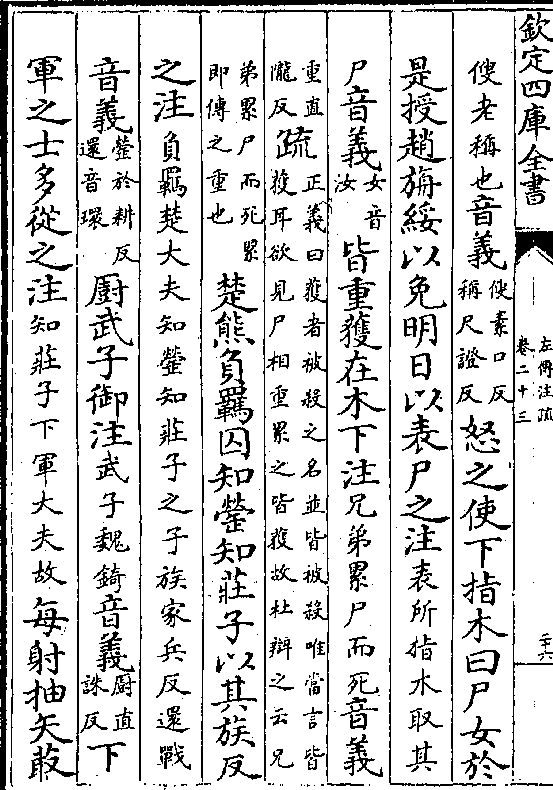 欽定四庫全書
左傳注疏
卷二十三
二十六
傁老稱也音義傁素口反
稱尺證反怒之使下指木曰尸女於
是授趙旃綏以免明日以表尸之注表所指木取其
尸音義女音
汝皆重獲在木下注兄弟累尸而死音義
重直
隴反疏正義曰獲者被殺之名並皆被殺唯當言皆
獲耳欲見尸相重累之皆獲故杜辯之云兄
弟累尸而死累
即傳之重也楚熊負羈囚知罃知莊子以其族反
之注負羈楚大夫知罃知莊子之子族家兵反還戰
音義罃於耕反
還音環厨武子御注武子魏錡音義厨直
誅反下
軍之士多從之注知莊子下軍大夫故每射抽矢菆